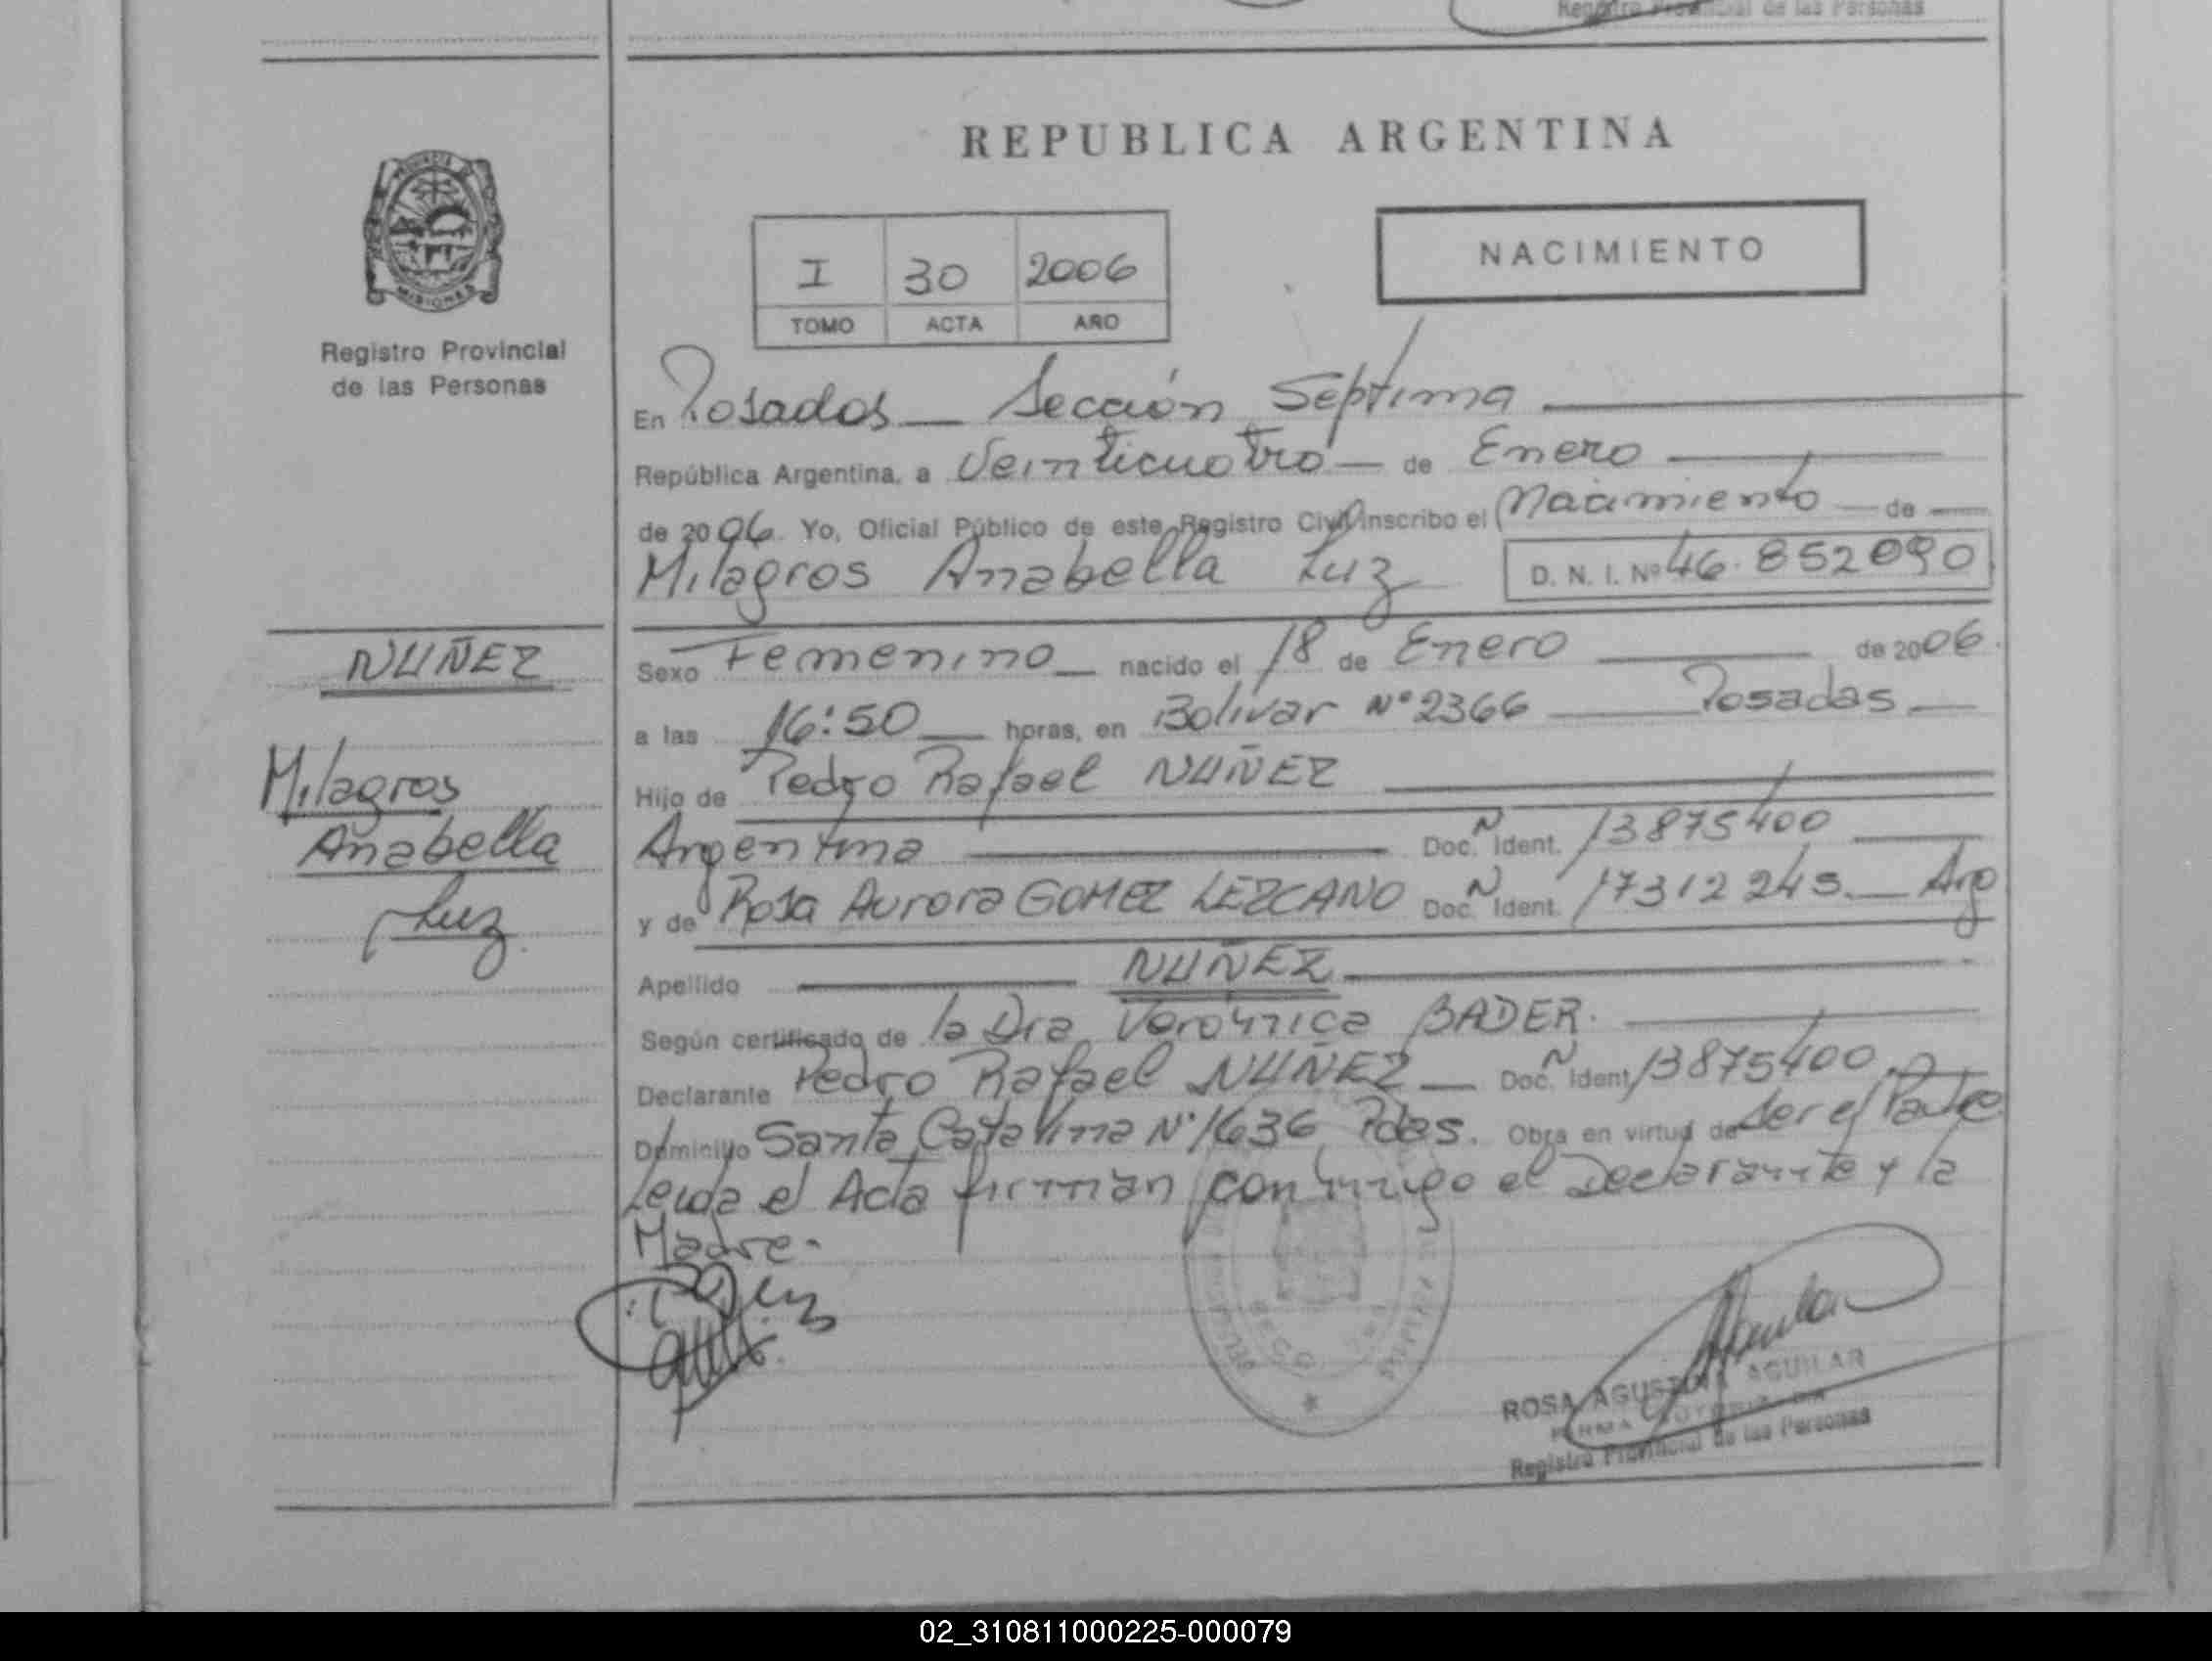 Registro Provincial de las Personas
REPUBLICA ARGENTINA
PROVINCIA DE
MISIONES
Registro Provincial
de las Personas
I 30 2006
TOMO ACTA AÑO
NACIMIENTO
En Posadas — Sección Septima
República Argentina, a Veinticuatro — de Enero
de 2006. Yo, Oficial Público de este Registro Civil inscribo el Nacimiento — de —
Milagros Anabella Luz D. N. I. Nº 46.852090
NUÑEZ
Milagros
Anabella
Luz
Sexo Femenino — nacido el 18 de Enero — de 2006.
a las 16:50 — horas, en Bolivar Nº 2366 — Posadas. —
Hijo de Pedro Rafael NUÑEZ
Argentina — Doc. N Ident. 13875400
y de Rosa Aurora GOMEZ LEZCANO Doc. N Ident. 17312245. — Arg
Apellido — NUÑEZ. —
Según certificado de la Dra Verónica BADER.
Declarante Pedro Rafael NUÑEZ — Doc. N Ident 13875400.
Domicilio Santa Catalina Nº 1636 Pdas. Obra en virtud de ser el Padre
Leida el Acta firman conmigo el Declarante y la
Madre.-
ROSA AGUSTINA AGUILAR
FIRMA AUTORIZADA
Registro Provincial de las Personas
02_310811000225-000079